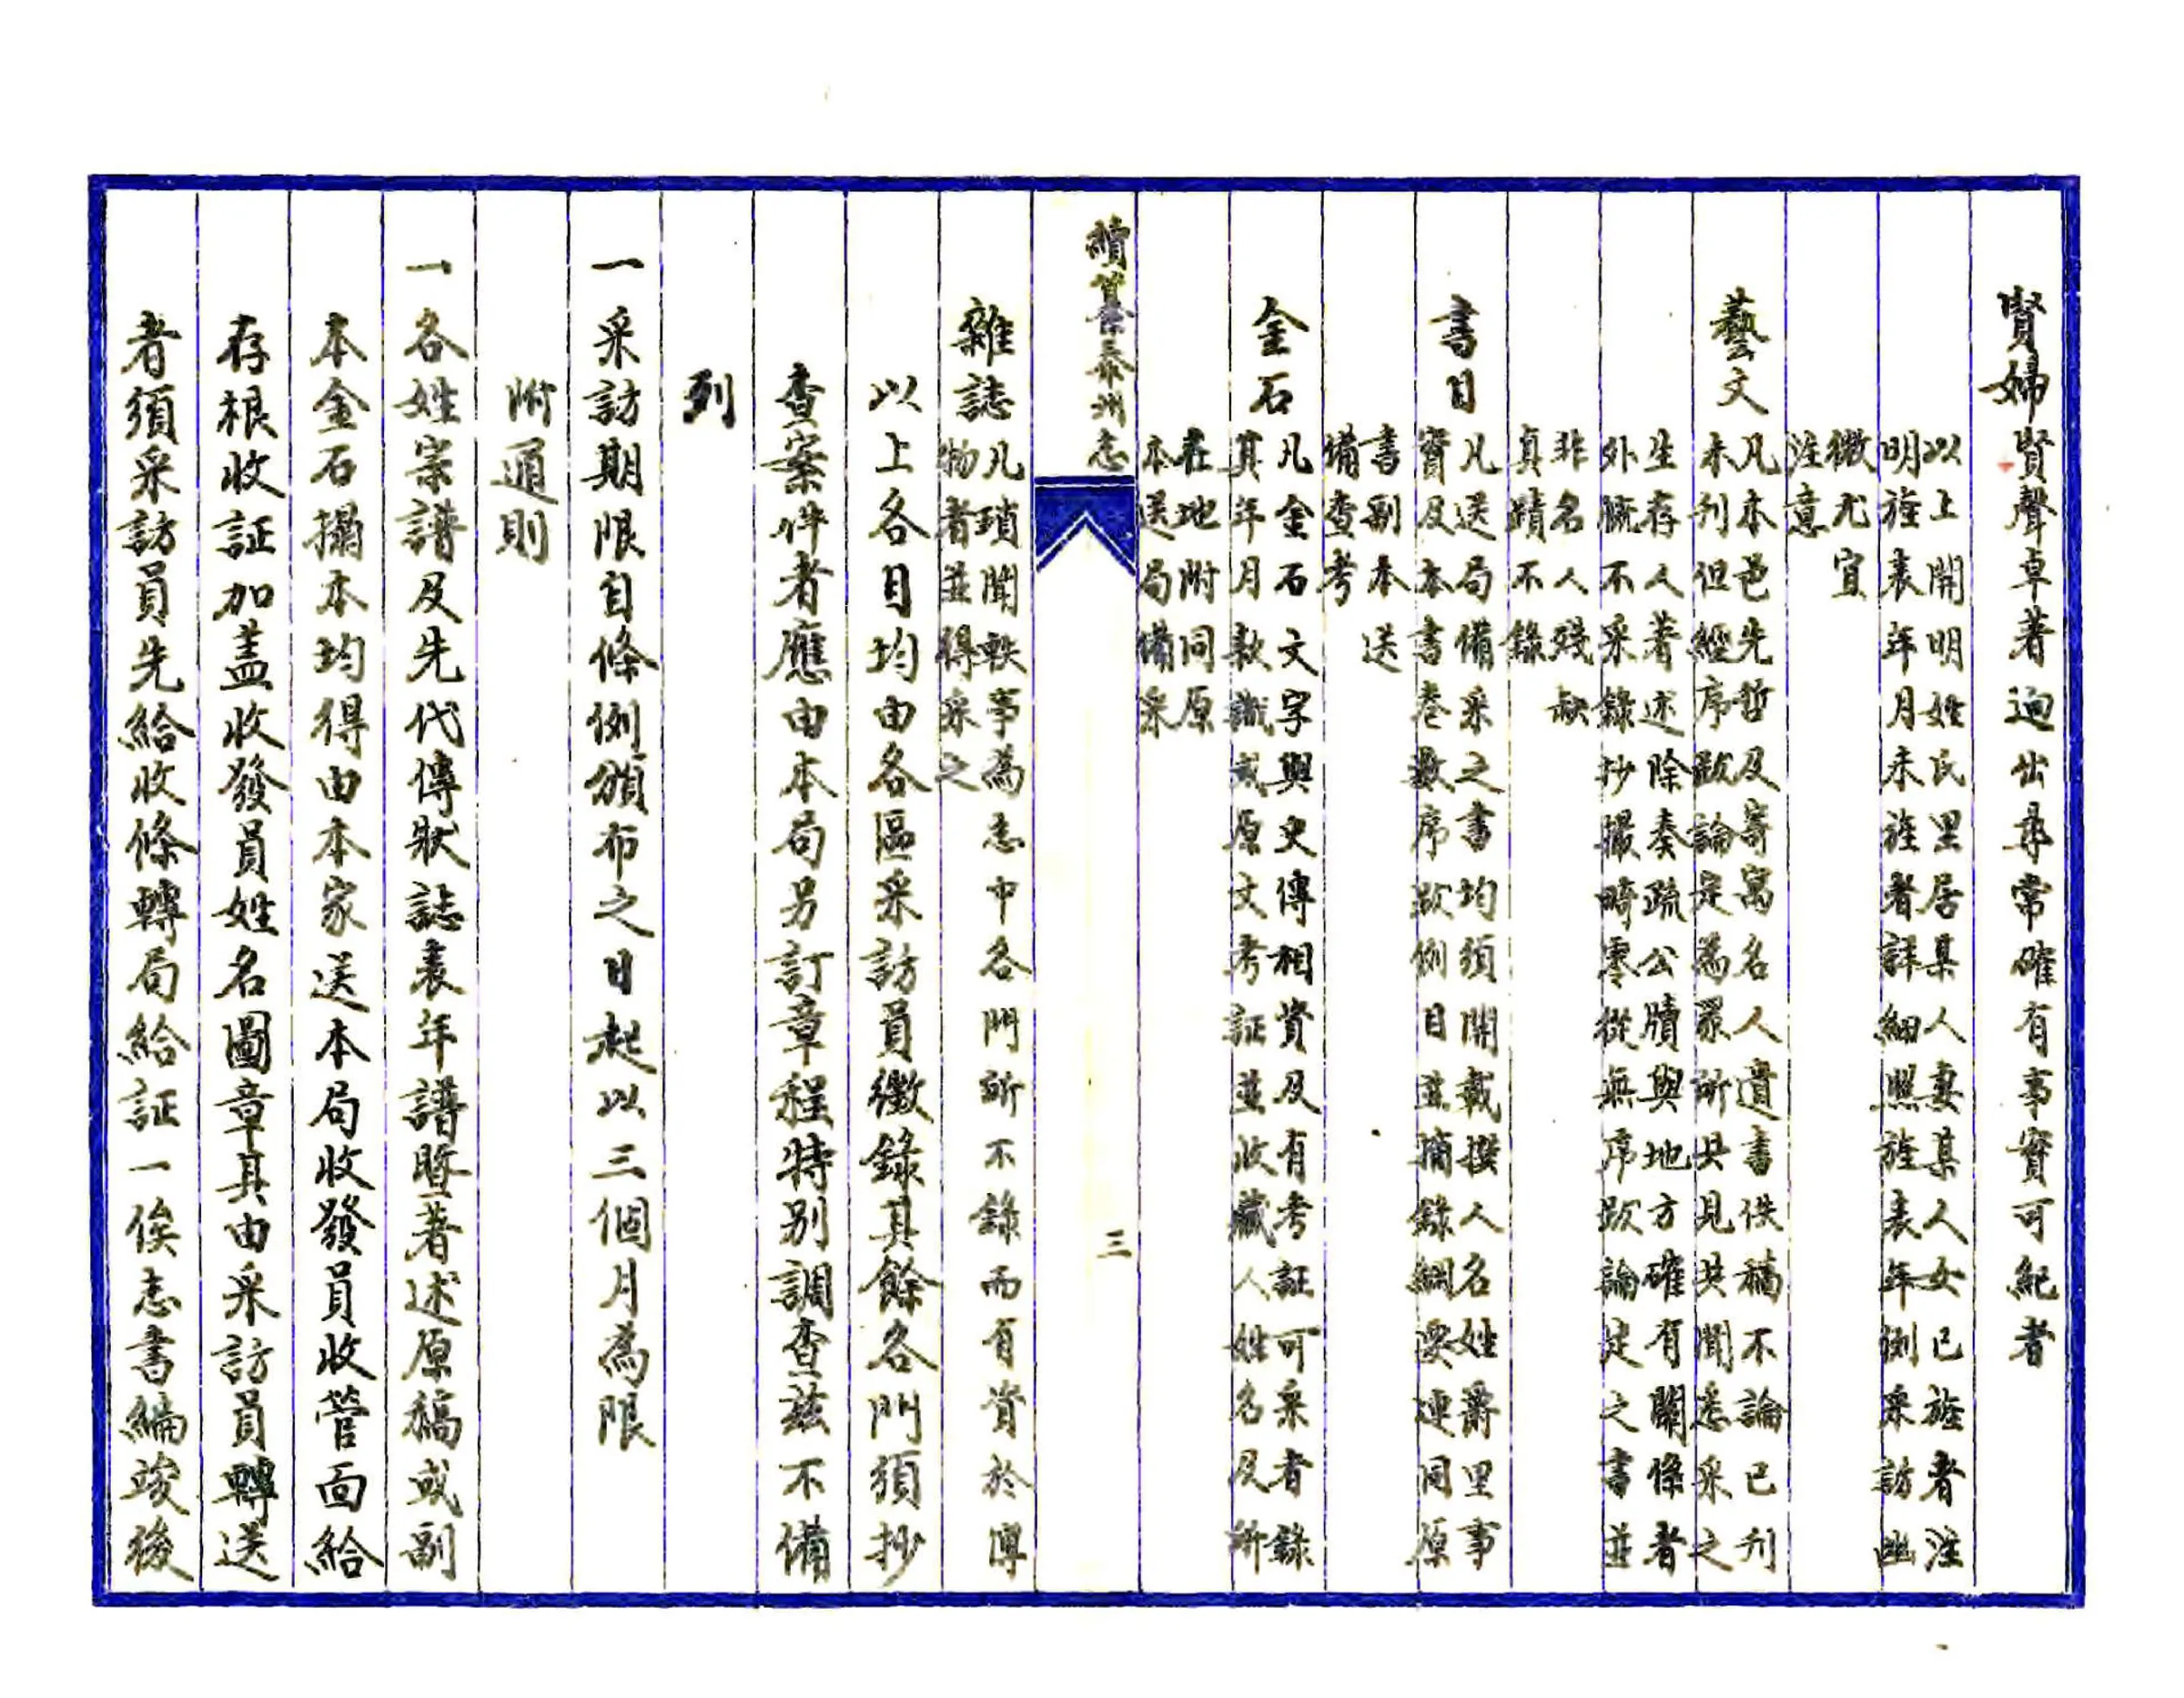 賢婦賢聲卓著迥出尋常確有事實可紀者
以上開明姓氏里居某人妻某人女已旌者注
明旌表年月未旌者詳細照旌表年例采訪幽
微尤宜
注意
藝文
凡本邑先哲及寄寓名人遺書佚稿不論已刋
未刋但經序跋論定為眾所共見共聞悉采之
生存人著述除奏疏公牘與地方確有關係者
外概不采錄抄撮畸零從無序跋論定之書並
非名人殘
真蹟不錄
書目
凡送局備采之書均須開載撰人名姓爵里事
實及本書卷數序跋例目並摘錄綱要連同原
書副本送
備查考
金石
凡金石文字與史傳相資及有考証可采者錄
其年月款識或原文考証並收藏人姓名及所
在地附同原
本送局備采
續纂泰州志
三
雜誌
凡瑣聞軼事為志中各門所不錄而有資於博
物者並得采之
以上各目均由各區采訪員徵錄其餘各門須抄
查案件者應由本局另訂章程特別調查茲不備
列
一采訪期限自條例頒布之日起以三個月為限
附通則
一各姓宗譜及先代傳狀誌表年譜暨著述原稿或副
本金石搨本均得由本家送本局收發員收管面給
存根收証加盖收發員姓名圖章其由采訪員轉送
者須采訪員先給收條轉局給証一俟志書編竣後